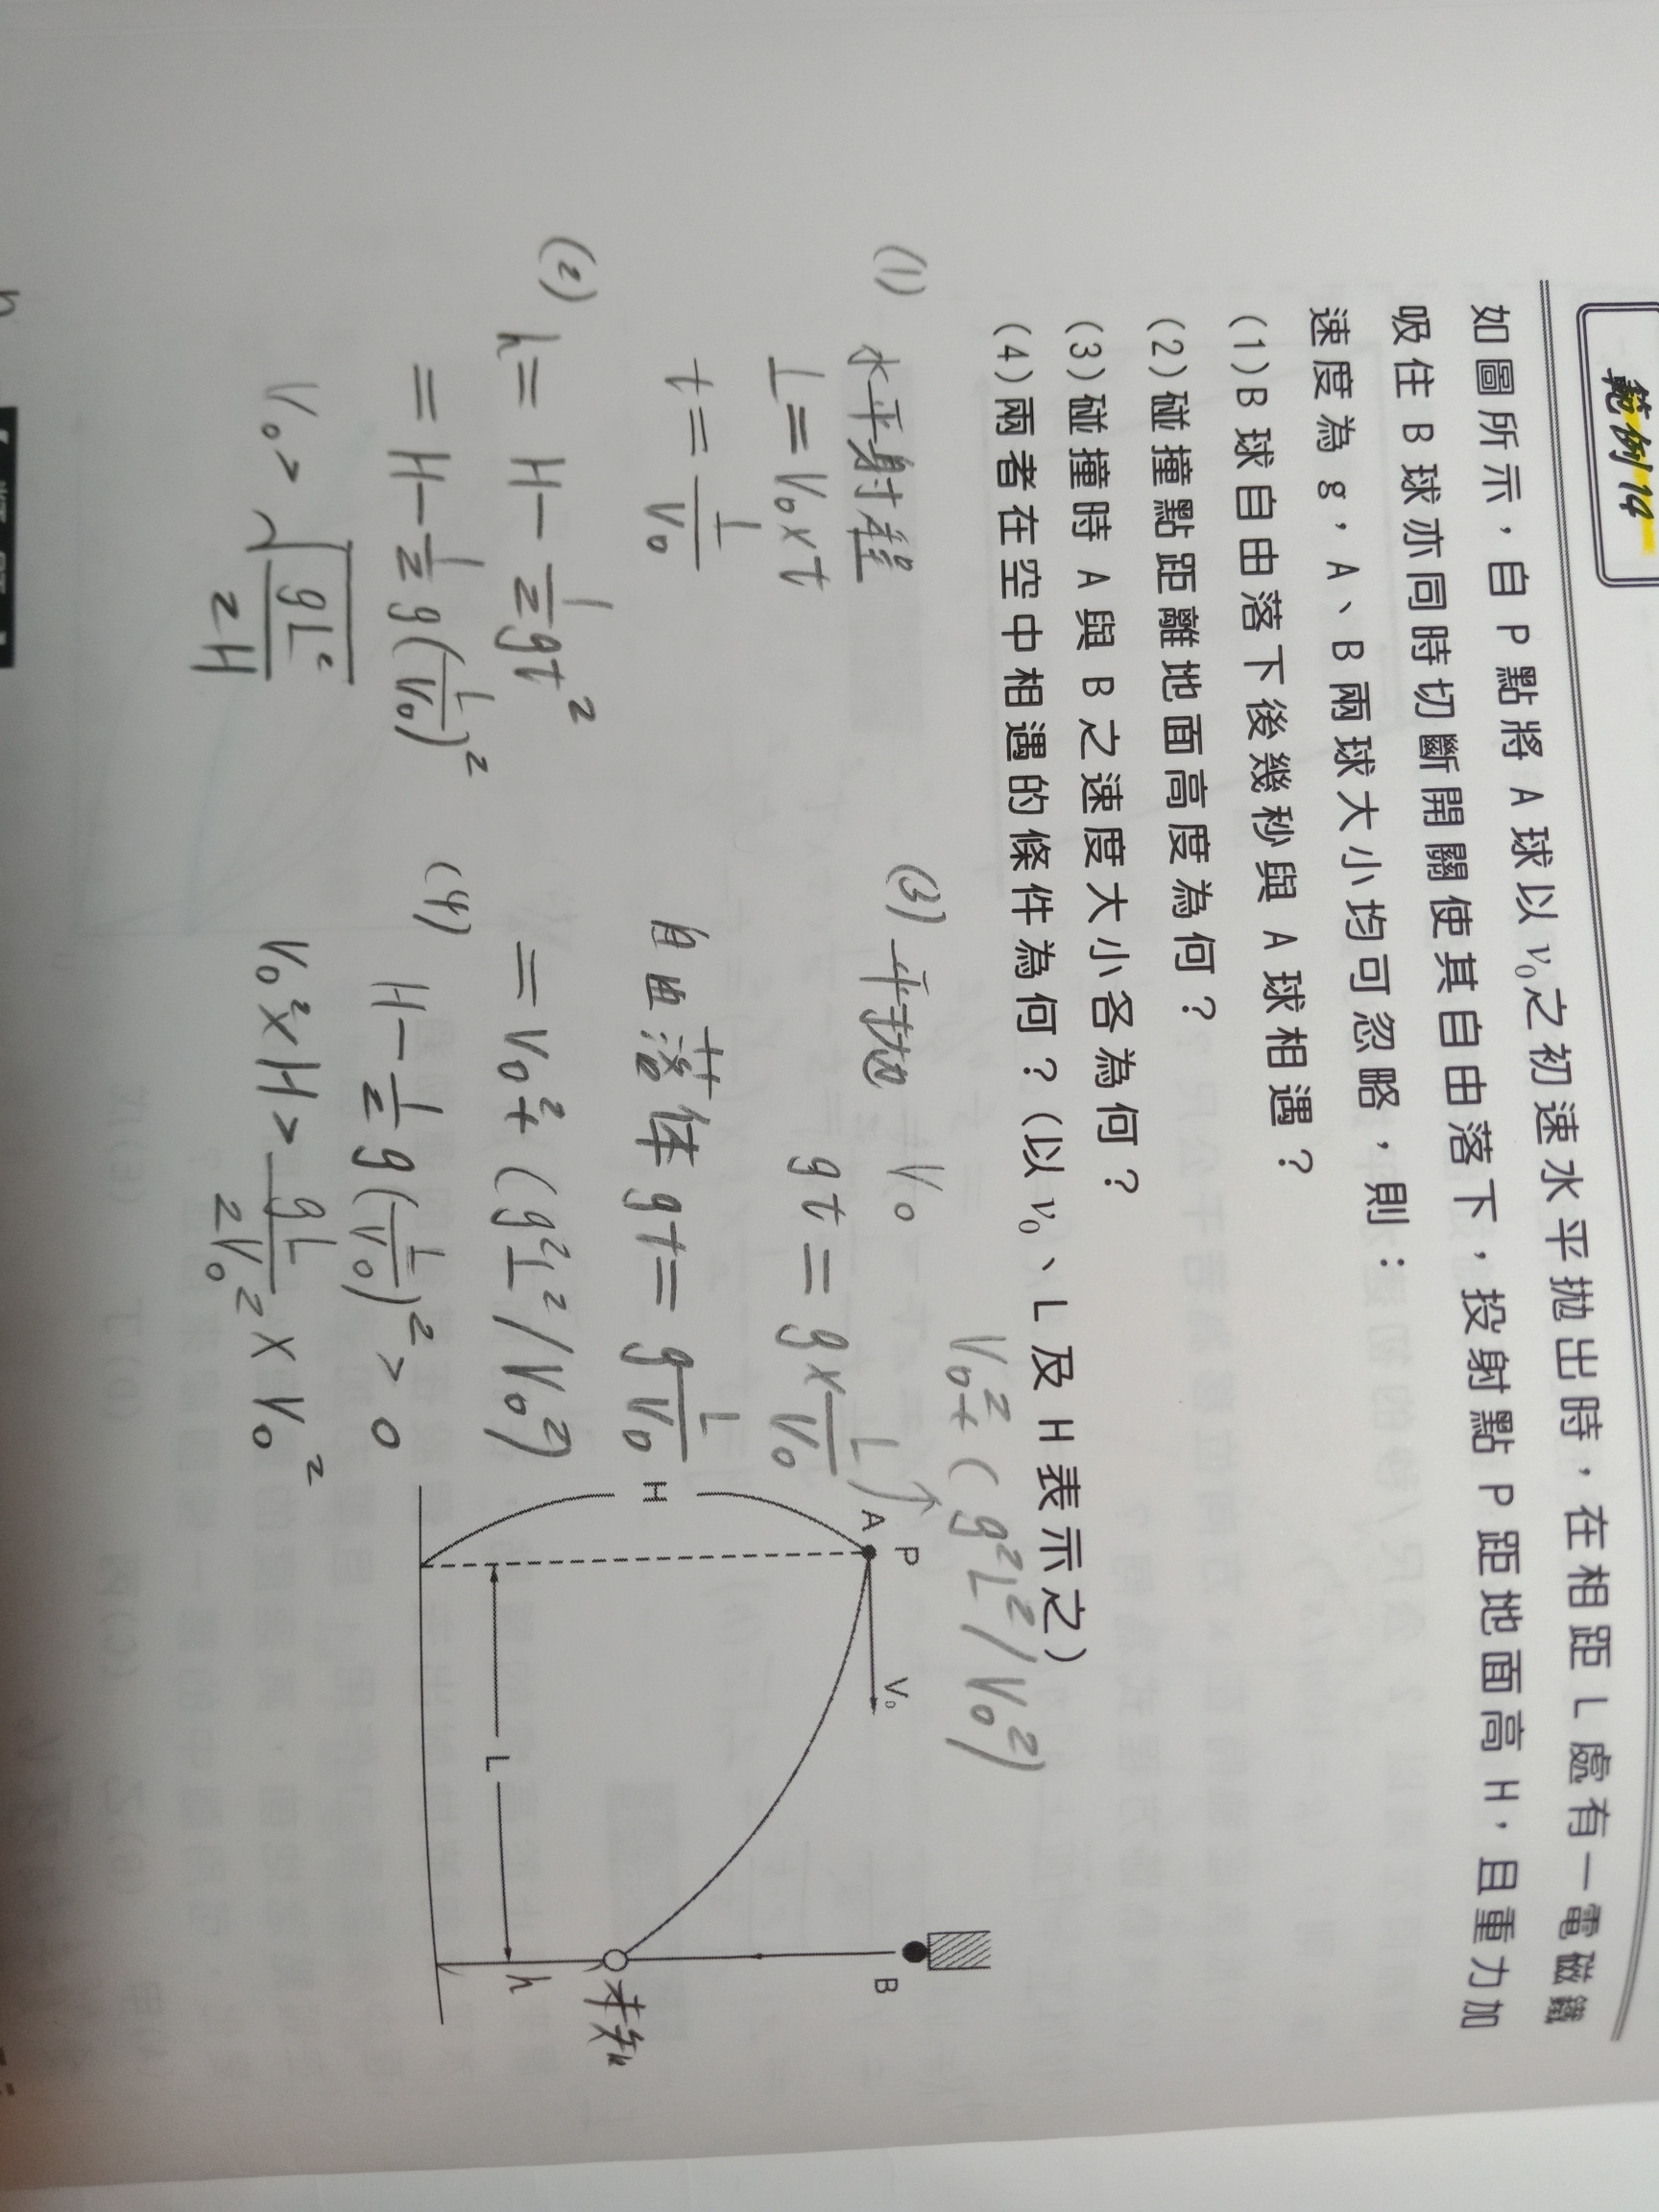 範例14
如圖所示，自 P 點將 A 球以 v₀之初速水平拋出時，在相距 L 處有一電磁鐵
吸住 B 球亦同時切斷開關使其自由落下，投射點 P 距地面高 H，且重力加
速度為 g，A、B 兩球大小均可忽略，則：
(1)B 球自由落下後幾秒與 A 球相遇？
(2)碰撞點距離地面高度為何？
(3)碰撞時 A 與 B 之速度大小各為何？
(4)兩者在空中相遇的條件為何？(以 v₀、L 及 H 表示之)
(1) 水平射程
L = V₀ x t
t = L/V₀
(2) h = H - 1/2 gt²
= H - 1/2 g(L/V₀)²
V₀ > √(gL²/2H)
(3) 平拋 V₀
V₀² + (g²L²/V₀²)
gt = g x L/V₀
自由落体 gt = g L/V₀
= V₀² + (g²L²/V₀²)
(4) H - 1/2 g(L/V₀)² > 0
V₀² x H > gL/2V₀² x V₀²
A
P
V₀
H
L
B
h
未知